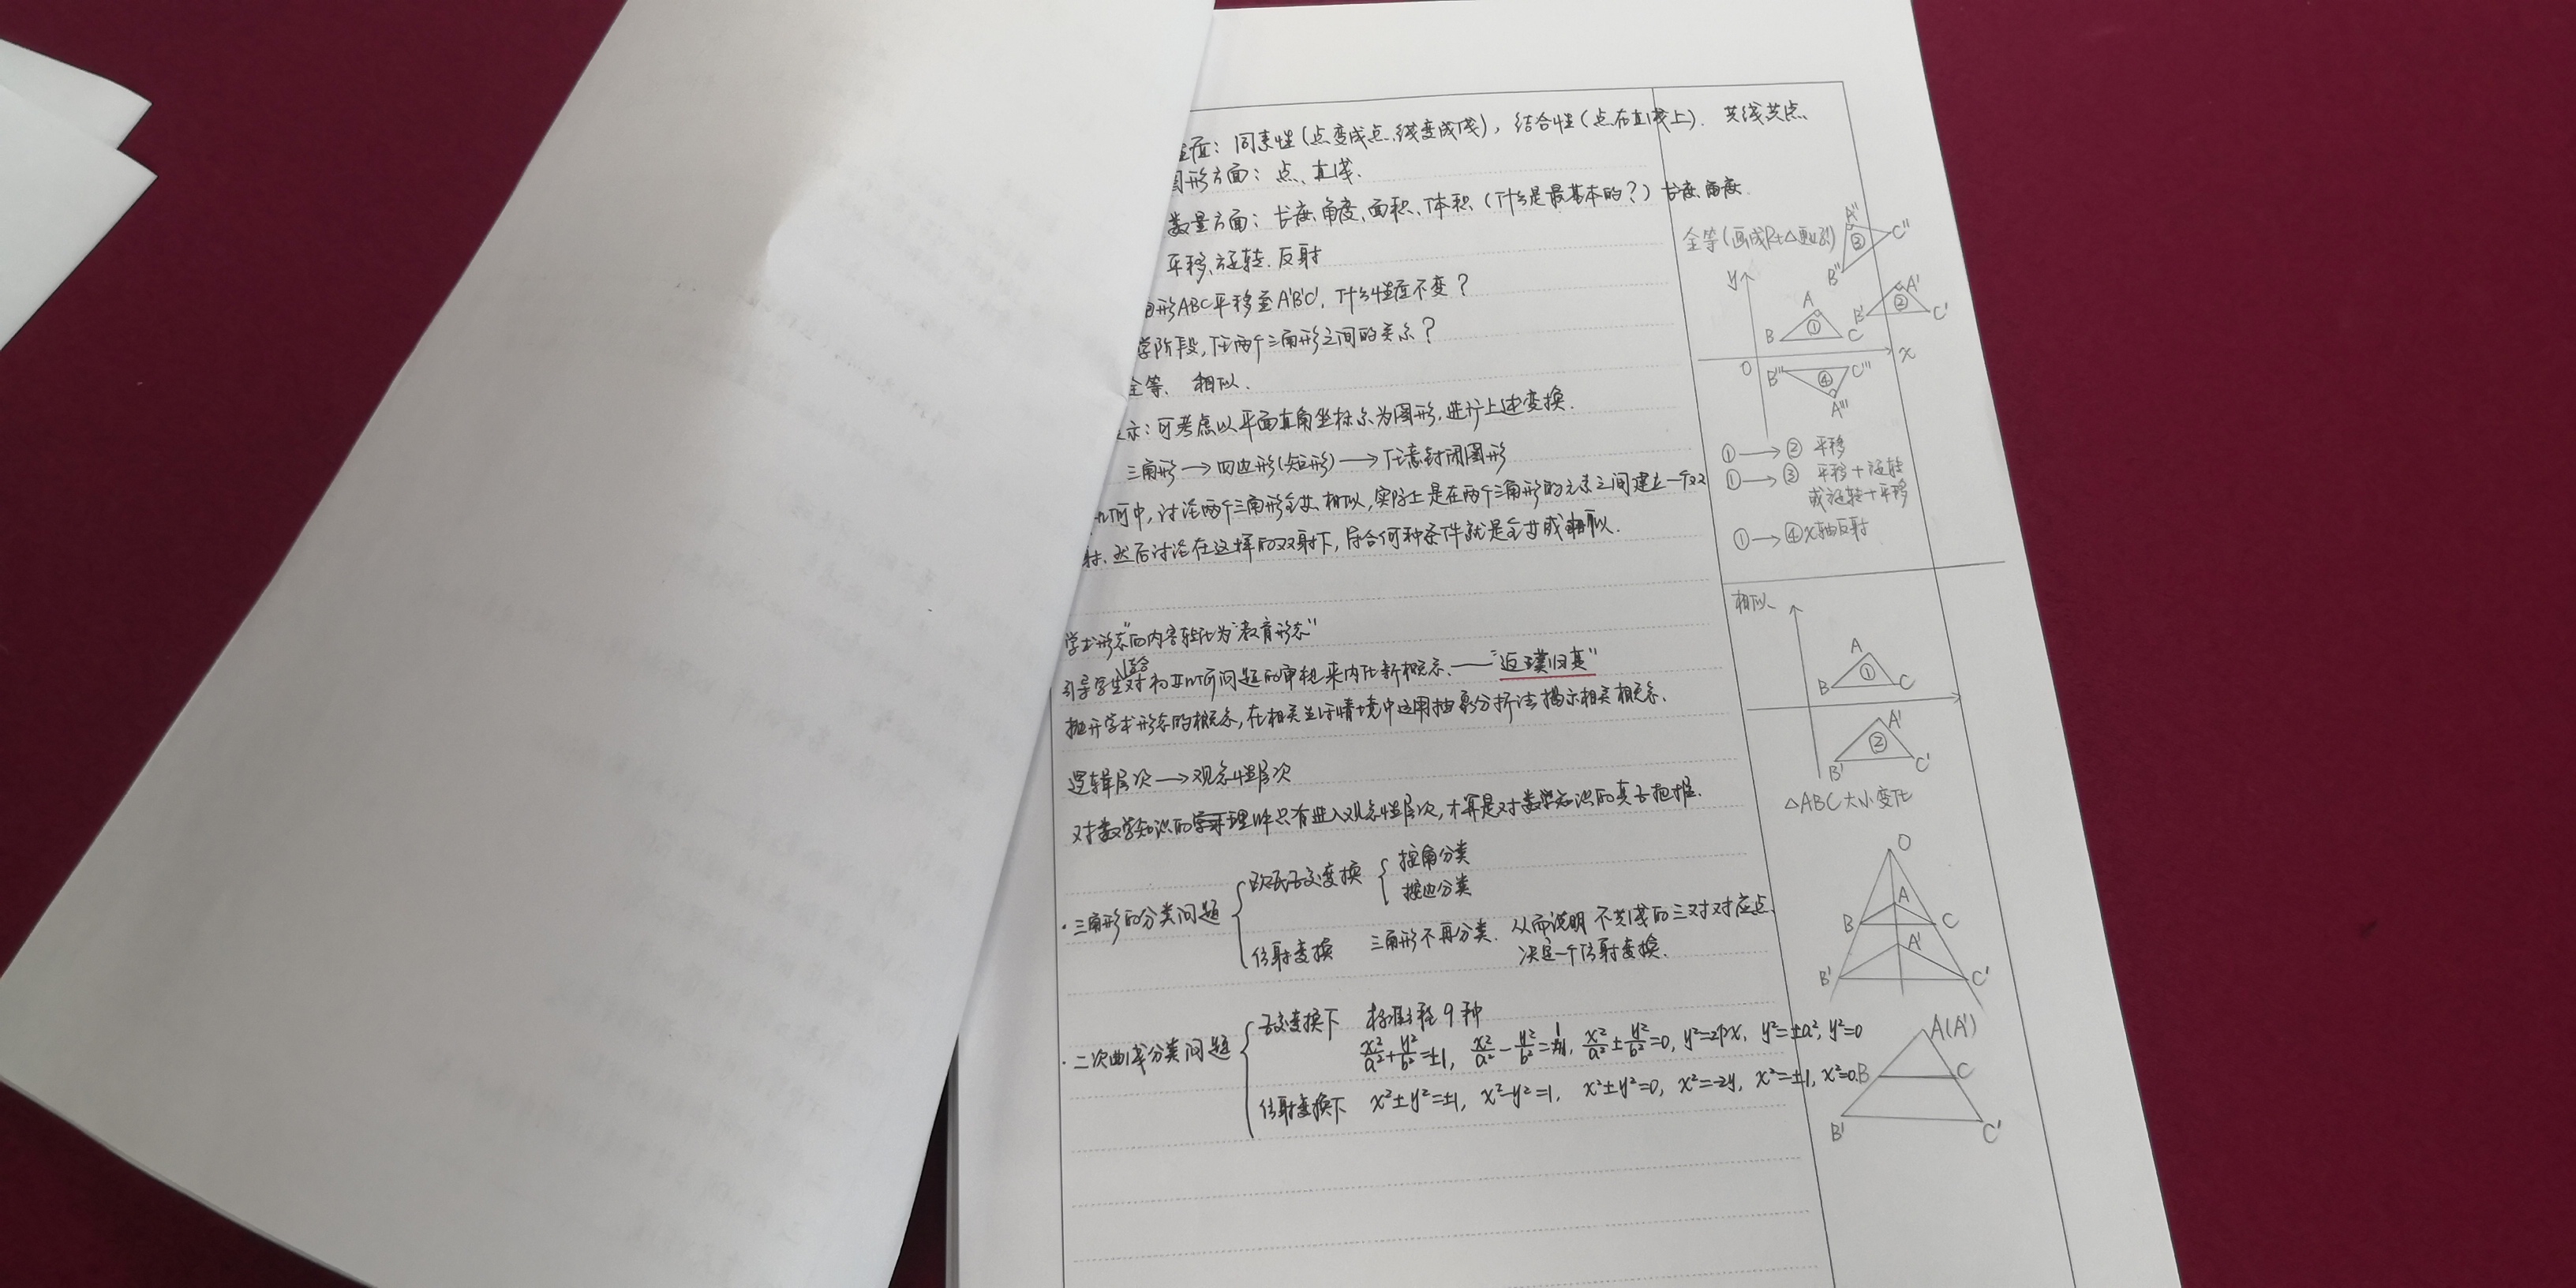 质：同素性(点变成点、线变成线)，结合性(点在直线上)．共线共点、
图形方面：点、直线．
数量方面：长度、角度、面积、体积（什么是最基本的？）长度、角度．
平移、旋转、反射
角形ABC平移至A'B'C'，什么性质不变？
学阶段，任两个三角形之间的关系？
全等、相似．
示：可考虑以平面直角坐标系为图形，进行上述变换．
三角形→四边形(矩形)→任意封闭图形
几何中，讨论两个三角形全等、相似，实际上是在两个三角形的元素之间建立一个双
射，然后讨论在这样的双射下，符合何种条件就是全等或相似．
学术形态"的内容转化为"教育形态"
引导学生对初等几何问题的审视来内化新概念．——"返璞归真"
抛开学术形态的概念，在相关生活情境中运用抽象分析法揭示相关概念．
逻辑层次→观念性层次
对数学知识的理解只有进入观念性层次，才算是对数学知识的真正把握．
·三角形的分类问题
正交变换
按角分类
按边分类
仿射变换 三角形不再分类．从而说明 不共线的三对对应点、
决定一个仿射变换．
·二次曲线分类问题
正交变换下 标准方程9种
x²/a²+y²/b²=±1, x²/a²-y²/b²=1, x²/a²±y²/b²=0, y²=2px, y²=±a², y²=0
仿射变换下 x²±y²=±1, x²-y²=1, x²±y²=0, x²=2y, x²=±1, x²=0.
全等(画成Rt△更好)
A"
③
C"
B"
y
A
①
B
C
A'
②
B'
C'
O
x
B'''
④
C'''
A'''
①→② 平移
①→③ 平移+旋转
或旋转+平移
①→④ x轴反射
相似、
A
①
B
C
A'
②
B'
C'
△ABC大小变化
O
A
B
C
A'
B'
C'
A(A')
B
C
B'
C'